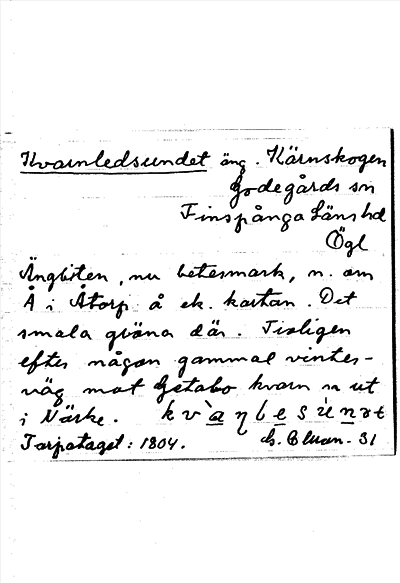 Kvarnledsundet äng. Kärnskogen
Godegårds sn
Finspånga läns hd
Ögl
Ängbiten, nu betesmark, n. om
Å i Åtorp å ek. kartan. Det
smala gröna där. Troligen
efter någon gammal vinter-
väg mot Getabo kvarn
ut
i Närke.
Torpataget: 1804. 31